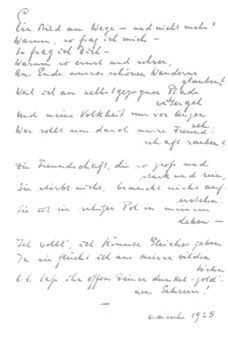 Ein Bild am Wege – und nicht mehr?
Warum, so frag ich mich –
So frag ich Dich –
Warum so ernst und schwer,
Am Ende unsres schönen Wanderns
glauben?
Weil ich am selbstgezognen Ende
Und meine nur vor Augen
Wer sollt uns darob unsre Freund-
schaft rauben?
Die Freundschaft, die so groß und
stark und rein,
Sie stirbt nicht, braucht nicht auf-
erstehn.
Sie ist ein ruhiger Pol in meinem
Leben –
Ich wollt', ich könnte Gleiches geben
Da ich aus meinen wilden
ich ihn offen Deiner dunkel-gold'-
nen
1925